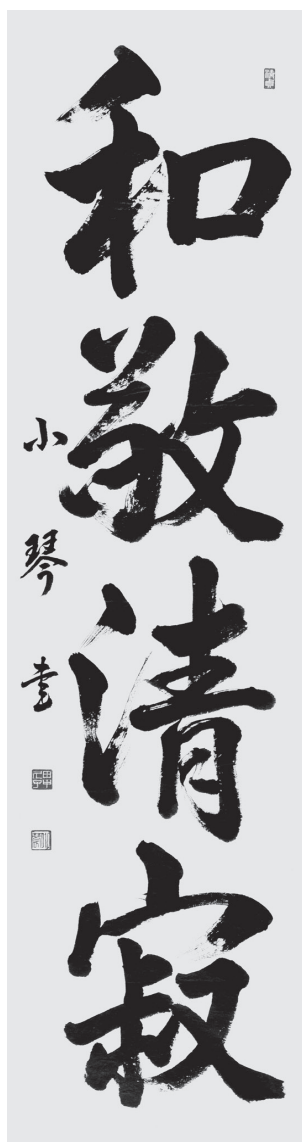 和敬清寂
小琴書